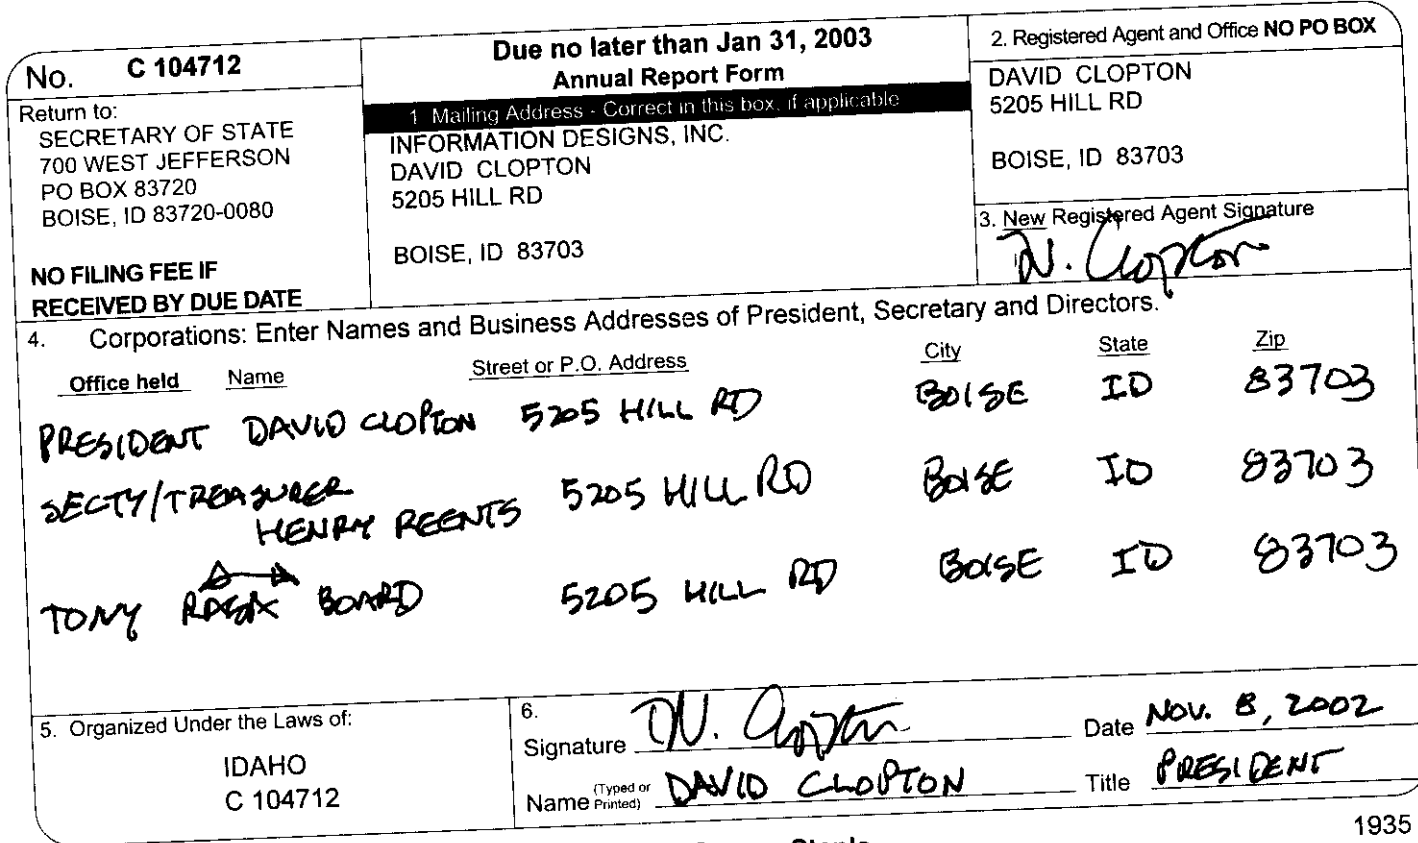 No. C 104712
Return to:
SECRETARY OF STATE
700 WEST JEFFERSON
PO BOX 83720
BOISE, ID 83720-0080
NO FILING FEE IF
RECEIVED BY DUE DATE
Due no later than Jan 31, 2003
Annual Report Form
1 Mailing Address - Correct in this box, if applicable
INFORMATION DESIGNS, INC.
DAVID CLOPTON
5205 HILL RD
BOISE, ID 83703
2. Registered Agent and Office NO PO BOX
DAVID CLOPTON
5205 HILL RD
BOISE, ID 83703
3. New Registered Agent Signature
D. Clopton
4. Corporations: Enter Names and Business Addresses of President, Secretary and Directors.
Office held Name Street or P.O. Address City State Zip
PRESIDENT DAVID CLOPTON 5205 HILL RD BOISE ID 83703
SECTY/TREASURER 5205 HILL RD BOISE ID 83703
HENRY REENTS
TONY BOARD 5205 HILL RD BOISE ID 83703
5. Organized Under the Laws of:
IDAHO
C 104712
6.
Signature D. Clopton Date NOV. 8, 2002
Name (Typed or Printed) DAVID CLOPTON Title PRESIDENT
1935